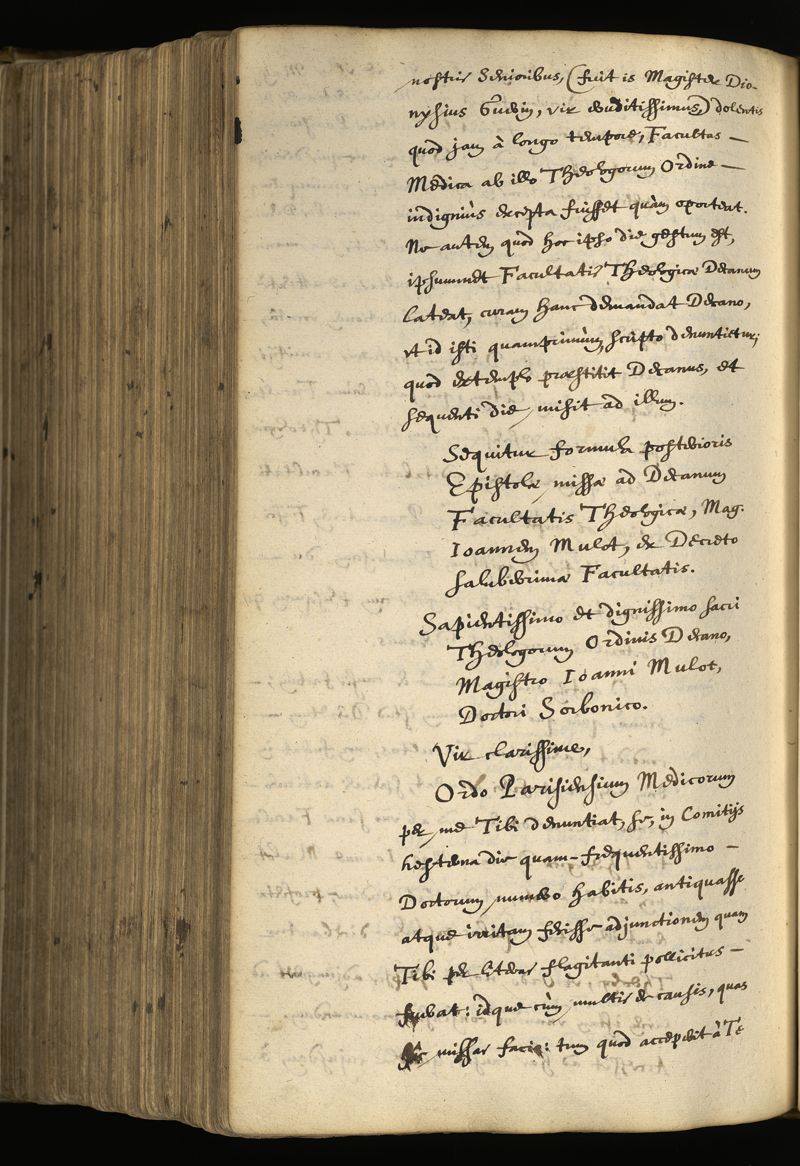 nostris Senioribus, (fuit is Magister Dio-
nysius Guerin, vir eruditissimus) dolentis
quod jam à longo tempore, Facultas —
Medica ab illo Theologorum Ordine —
indigniùs excepta fuisset quàm oporteat.
Ne autem quod hoc ipso die gestum est,
ipsummet Facultatis Theologicæ Decanum
lateat, curam hanc demandat Decano,
ut id isti quamprimùm scripto denuntietur;
quod extemplo præstitit Decanus, et
sequenti die, misit ad illum.
Sequitur formula posterioris
Epistolæ missæ ad Decanum
Facultatis Theologicæ, Mag.
Ioannem Mulot, ex Decreto
saluberrimæ Facultatis.
Sapientissimo et dignissimo sacri
Theologorum Ordinis Decano,
Magistro Ioanni Mulot,
Doctori Sorbonico.
Vir clarissime,
Ordo Parisiensium Medicorum
per me Tibi denuntiat, se, in Comitijs
hesterna die quam-frequentissimo —
Doctorum numero habitis, antiquasse
atque irritam fecisse adjunctionem quam
Tibi per literas flagitanti pollicitus —
fuerat: idque cùm multis de causis, quas
hîc missas facio: tum quod acceperit à Te